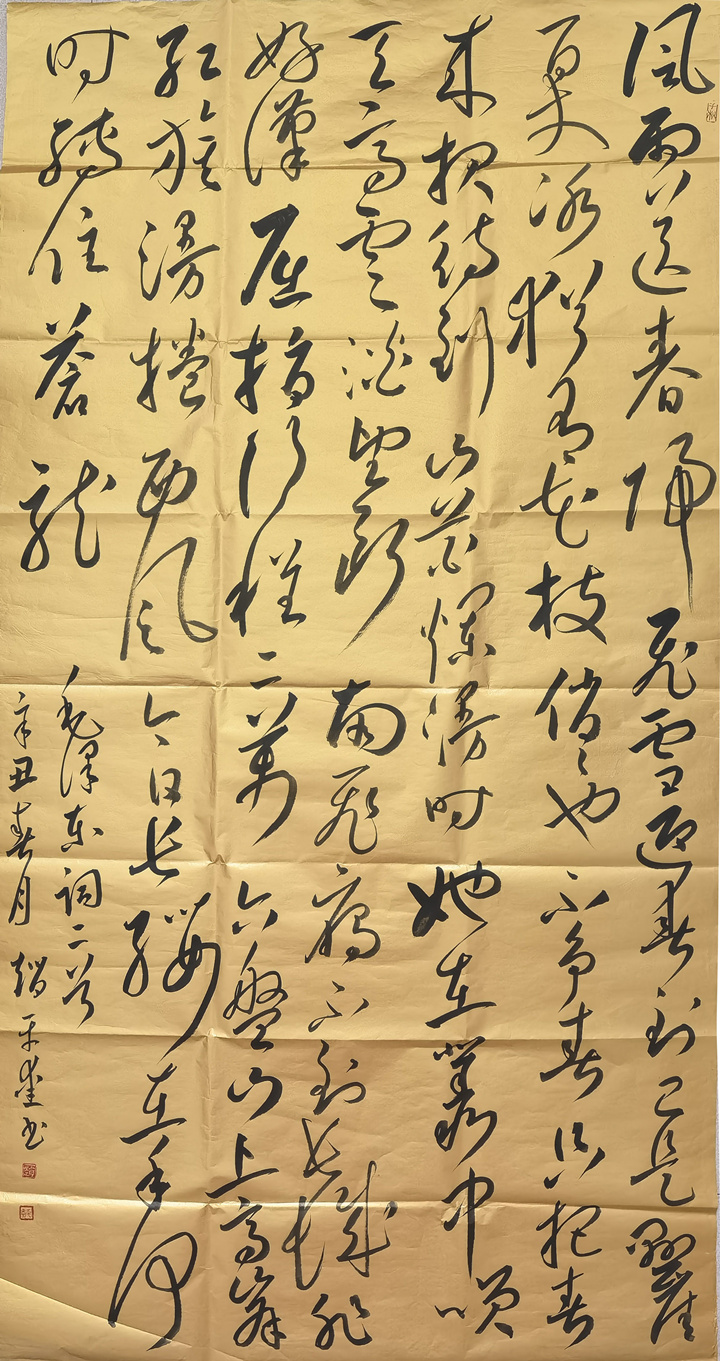 風雨送春歸飛雪迎春到已是懸崖
百丈冰猶有花枝俏〻也不争春只把春
来報待到山花爛漫時她在叢中咲
天高雲淡望斷南飛雁不到長城非
好漢屈指行程二萬六盤山上高峰
紅旗漫捲西風今日長纓在手何
時縛住蒼龍
毛澤東詞二首
辛丑春月